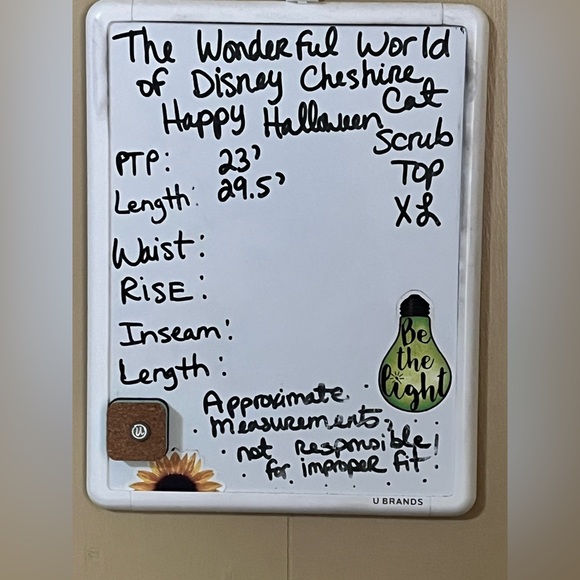 The Wonderful World
of Disney Cheshire
Cat
Happy Halloween
Scrub
Top
XL
PTP: 23'
Length: 29.5'
Waist:
RISE:
Inseam:
Length:
Be
the
light
Approximate
measurements,
not responsible
for improper fit
U
U BRANDS